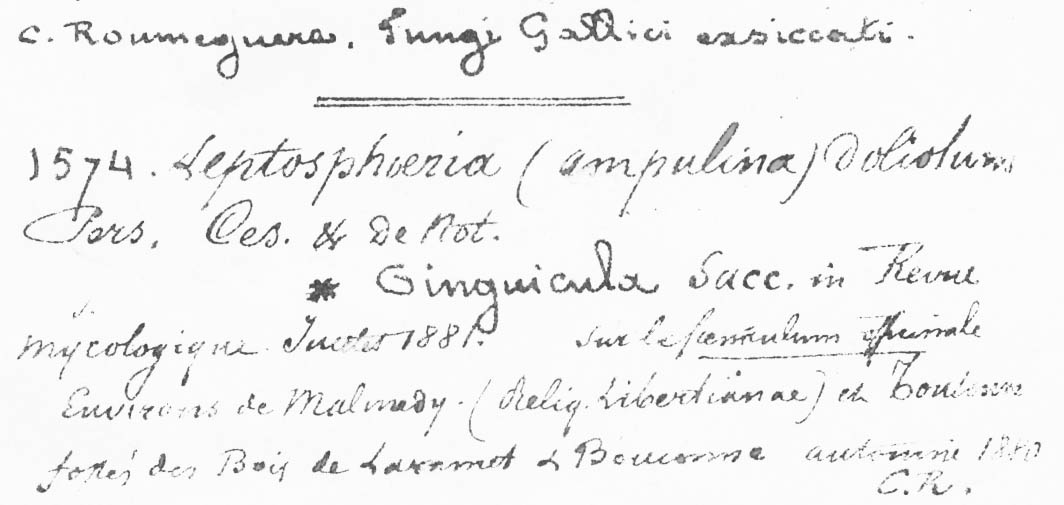 C. Roumeguere. Fungi Gallici exsiccati.
1574. Leptosphoeria (ampulina) Doliolum
Pers. Ces. & De Not.
* Cinguicula Sacc. in Revue
Mycologique 1881. sur le foeniculum officinale
Environs de Malmedy. (Reliq. Libertianae) et Toulouse
fossés des Bois de Laramet & Bouconne automne 1880
C.R.